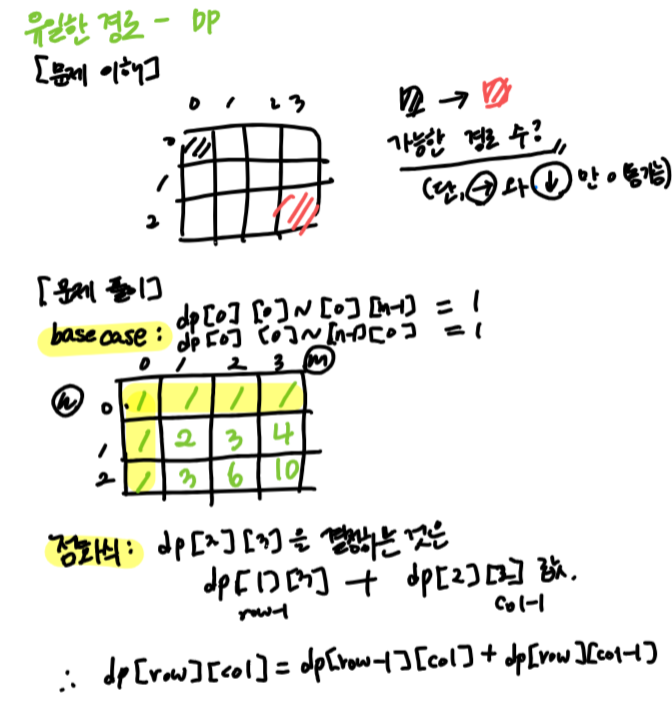 유일한 경로 - DP
[문제 이해]
0 1 2 3
0
1
2
→
가능한 경로 수?
(단, → 와 ↓ 만 이동가능)
[문제 풀이]
base case: dp[0][0]~[0][m-1] = 1
dp[0][0]~[n-1][0] = 1
0 1 2 3 m
n 0 1 1 1 1
1 1 2 3 4
2 1 3 6 10
점화식: dp[2][3]을 결정하는 것은
dp[1][3] + dp[2][2] 값.
row-1 col-1
∴ dp[row][col] = dp[row-1][col] + dp[row][col-1]